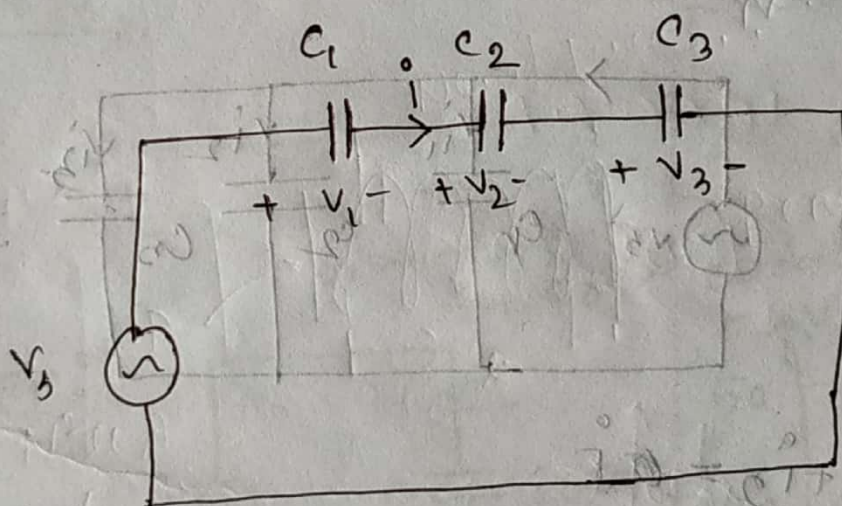 C₁ C₂ C₃
i
+ V₁ - + V₂ - + V₃ -
Vs